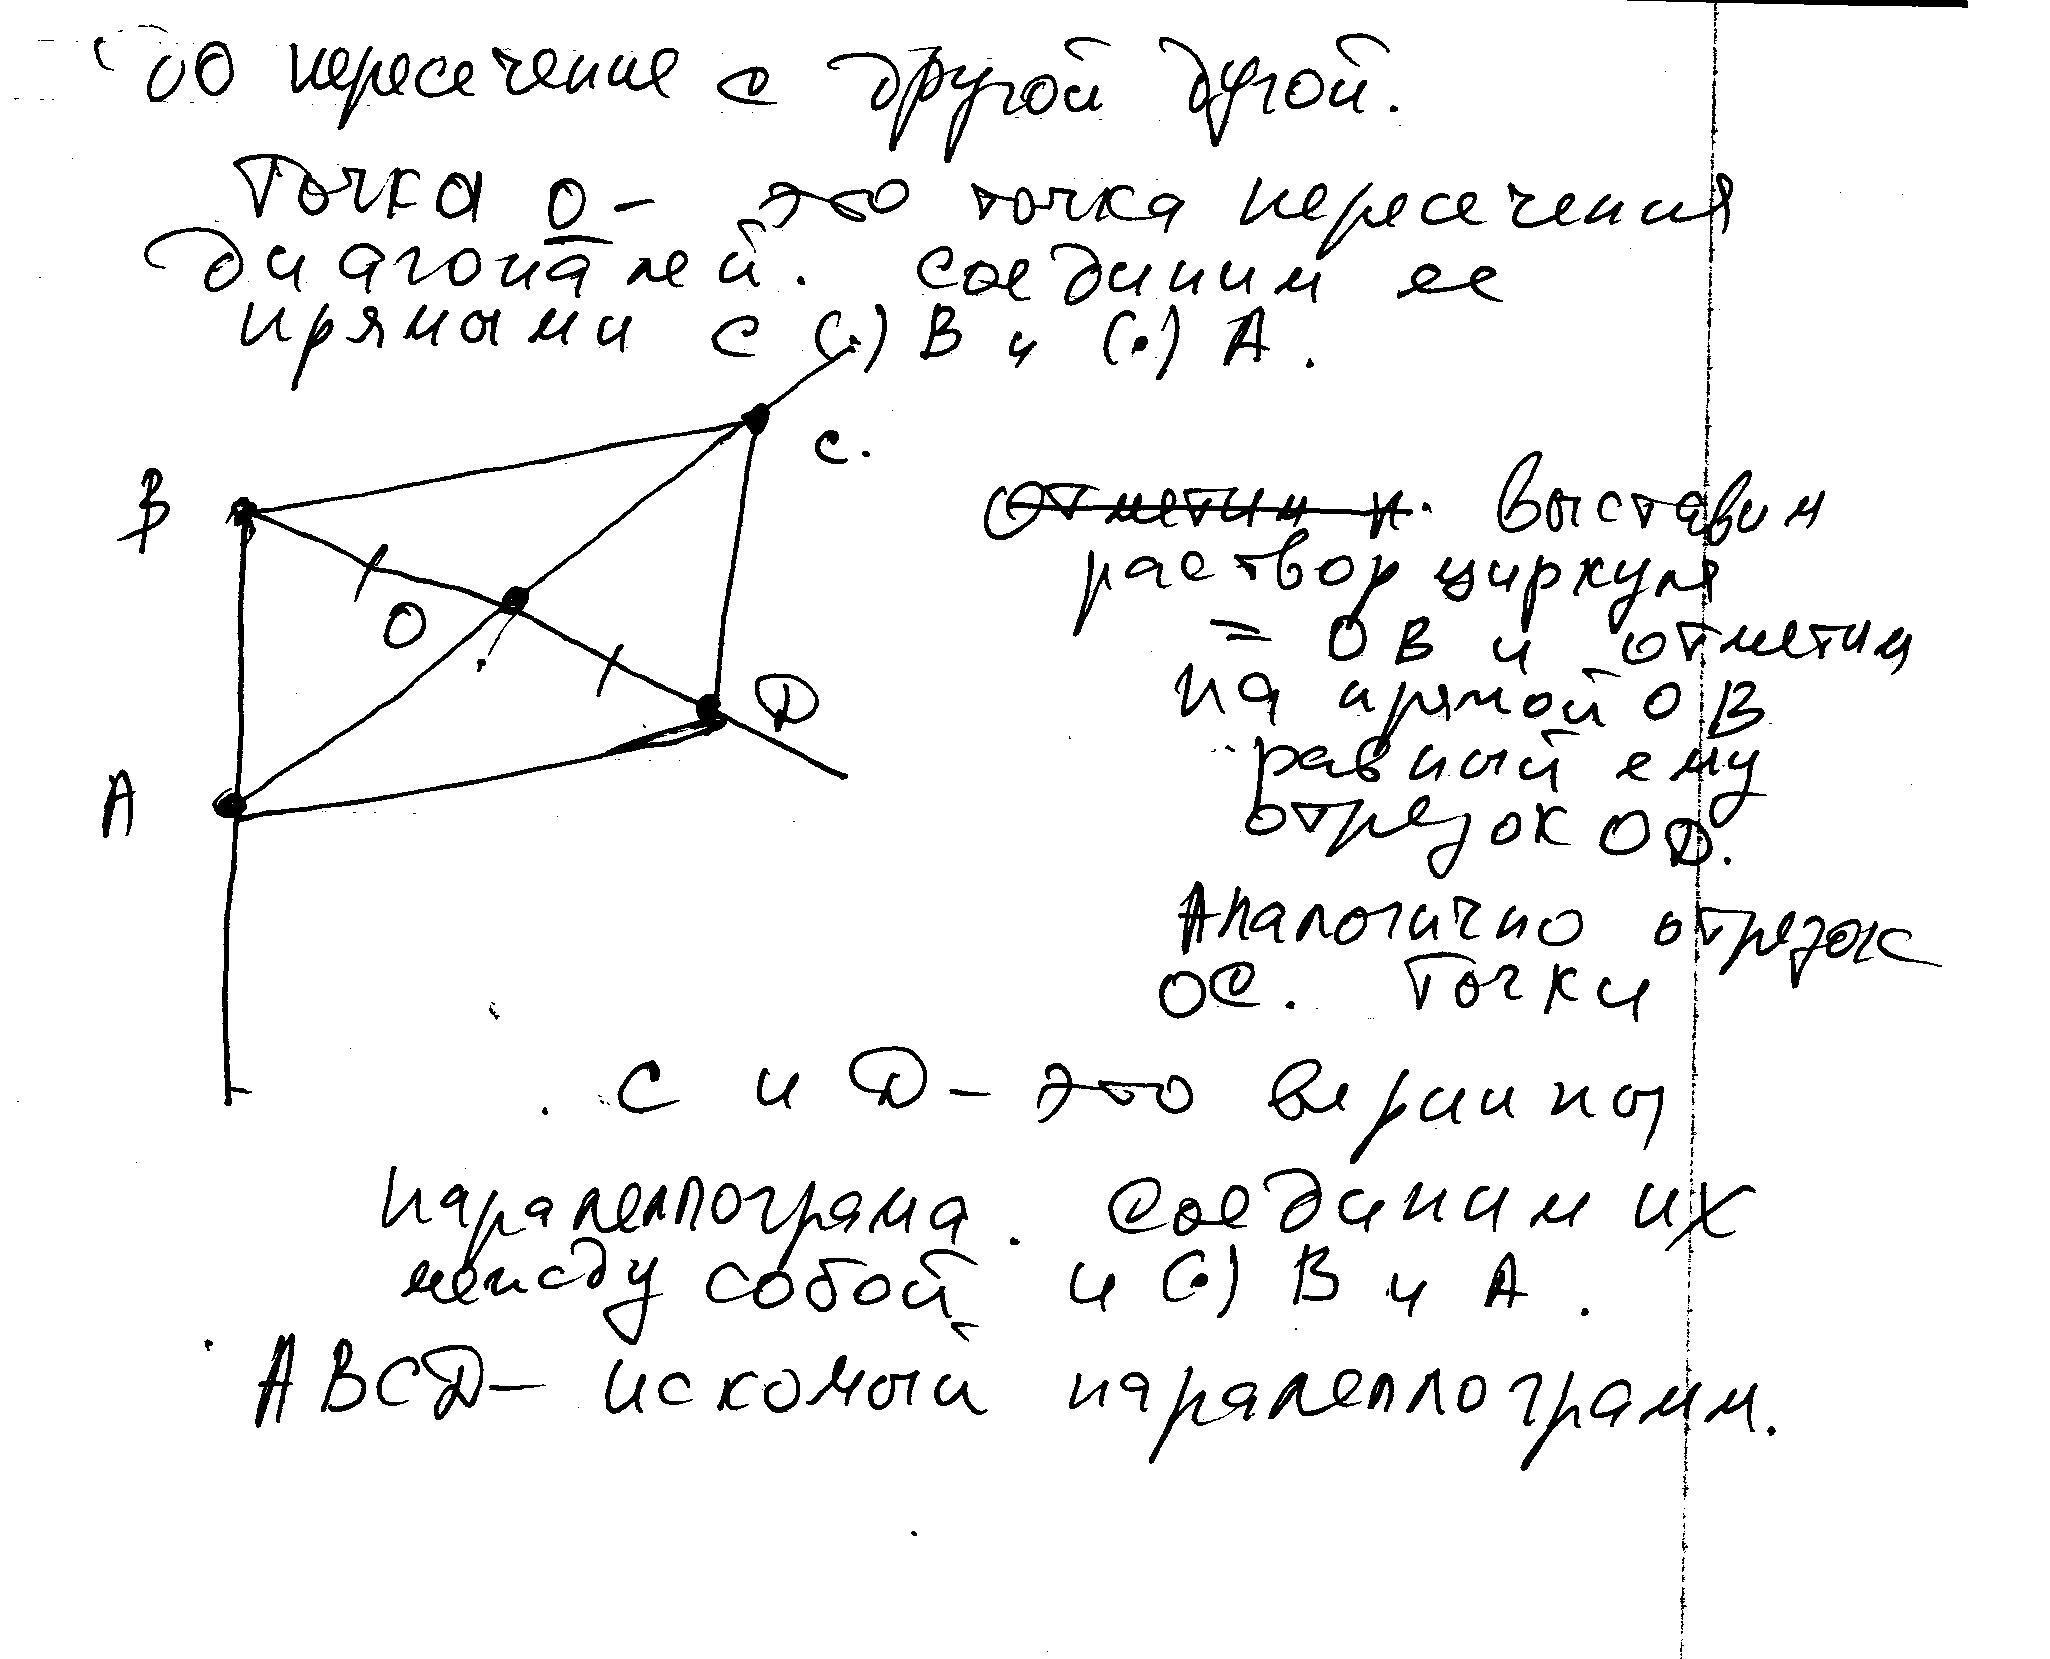 до пересечение с другой дугой.
Точка О - это точка пересечения
диагоналей. Соединим ее
прямыми с (.) В и (.) А.
С.
В
О
D
А
Отметим н. Выставим
раствор циркуля
= ОВ и отметим
на прямой ОВ
равный ему
отрезок ОD.
Аналогично отрезок
ОС. Точки
С и D - это вершины
параллелограма. Соединим их
между собой и (.) В и А.
ABCD - искомый параллелограмм.